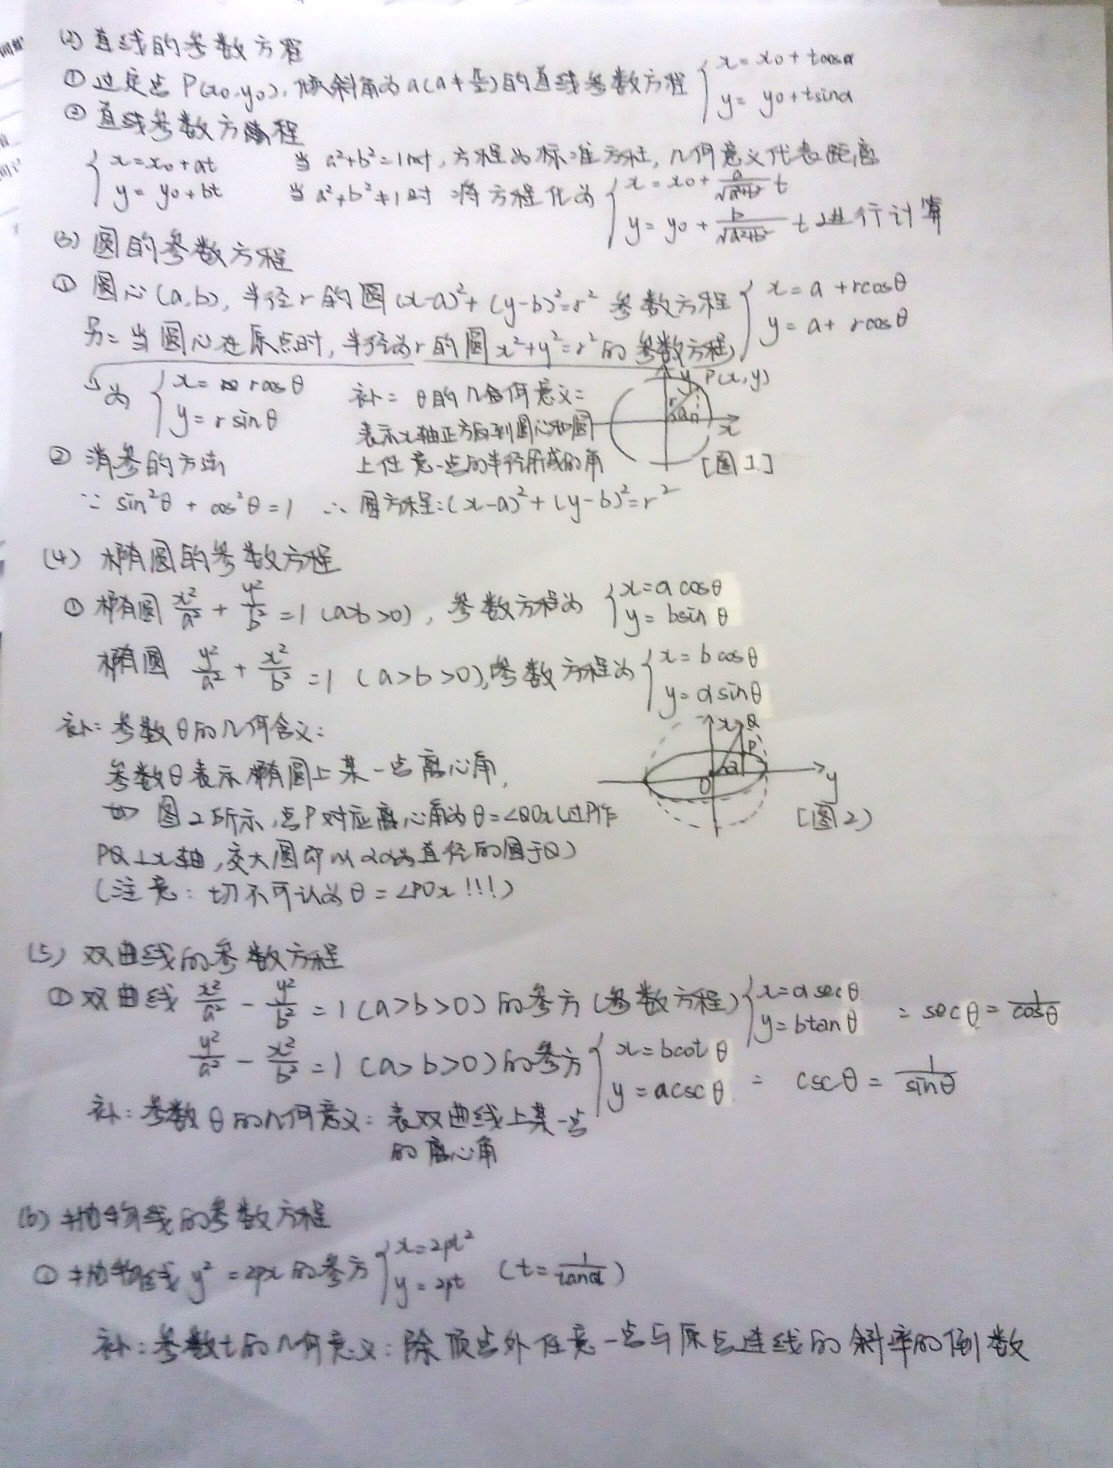 (2) 直线的参数方程
① 过定点P(x₀,y₀), 倾斜角为α(α≠π/2)的直线参数方程 { x=x₀+tcosα
y=y₀+tsinα
② 直线参数方程
{ x=x₀+at 当a²+b²=1时, 方程为标准方程, 几何意义代表距离
y=y₀+bt 当a²+b²≠1时 将方程化为 { x=x₀+a/√(a²+b²) t
y=y₀+b/√(a²+b²) t 进行计算
(3) 圆的参数方程
① 圆心(a,b), 半径r的圆(x-a)²+(y-b)²=r² 参数方程 { x=a+rcosθ
y=a+rcosθ
另: 当圆心在原点时, 半径为r的圆x²+y²=r²的参数方程
为 { x=rcosθ
y=rsinθ
补: θ的几何意义:
表示x轴正方向到圆心和圆
上任意一点的半径所成的角
y P(x,y)
r
α
x
[图1]
② 消参的方法
∵ sin²θ+cos²θ=1 ∴ 圆方程:(x-a)²+(y-b)²=r²
(4) 椭圆的参数方程
① 椭圆 x²/a²+y²/b²=1(a>b>0), 参数方程为 { x=acosθ
y=bsinθ
椭圆 y²/a²+x²/b²=1 (a>b>0),参数方程为 { x=bcosθ
y=asinθ
补: 参数θ的几何含义:
参数θ表示椭圆上某一点离心角,
如图2所示,点P对应离心角为θ=∠QOx(过P作
PQ⊥x轴,交大圆即以2a为直径的圆于Q)
(注意: 切不可认为θ=∠POx!!!)
x Q
P
O α
y
[图2]
(5) 双曲线的参数方程
① 双曲线 x²/a²-y²/b²=1(a>b>0)的参方(参数方程) { x=asecθ
y=btanθ : secθ=1/cosθ
y²/a²-x²/b²=1 (a>b>0)的参方 { x=bcotθ
y=acscθ : cscθ=1/sinθ
补: 参数θ的几何意义: 表双曲线上某一点
的离心角
(6) 抛物线的参数方程
① 抛物线y²=2px的参方 { x=2pt²
y=2pt (t=1/tanα)
补: 参数t的几何意义: 除顶点外任意一点与原点连线的斜率的倒数